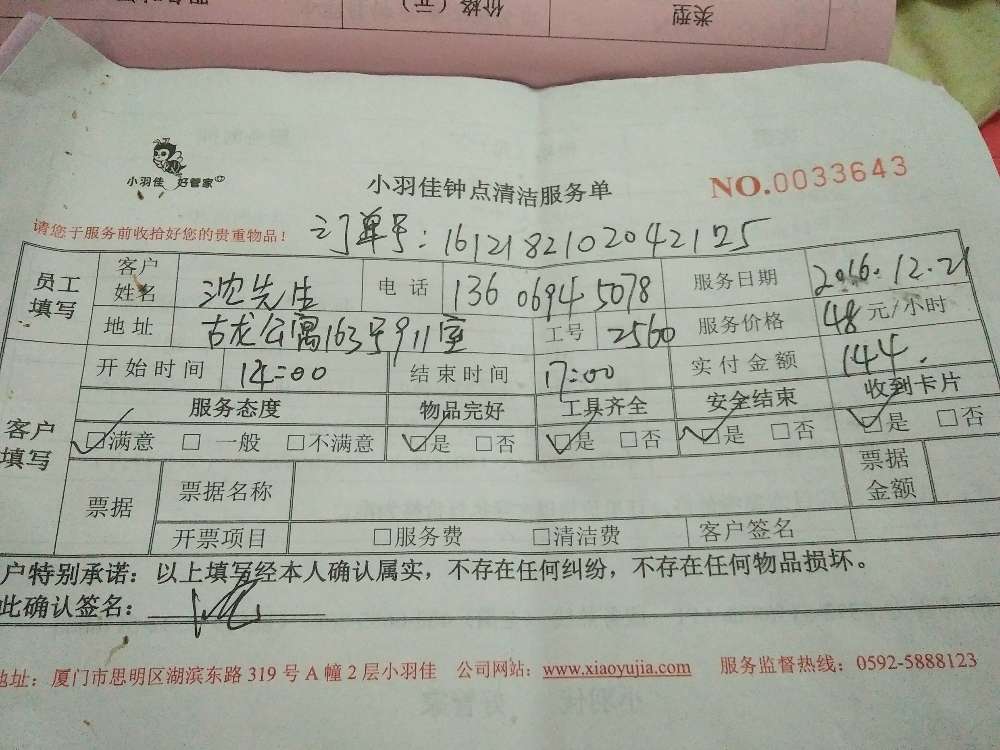 类型
价格（元）
小羽佳 好管家
小羽佳钟点清洁服务单
NO.0033643
请您于服务前收拾好您的贵重物品！
订单号：1612182102042175
员工填写 客户姓名 沈先生 电话 136 0694 5078 服务日期 2016.12.21
地址 古龙公寓163号911室 工号 2560 服务价格 48元/小时
客户填写 开始时间 14:00 结束时间 17:00 实付金额 144.
服务态度 物品完好 工具齐全 安全结束 收到卡片
☑满意 □一般 □不满意 ☑是 □否 ☑是 □否 ☑是 □否 ☑是 □否
票据 票据名称 票据金额
开票项目 □服务费 □清洁费 客户签名
户特别承诺：以上填写经本人确认属实，不存在任何纠纷，不存在任何物品损坏。
此确认签名：
地址：厦门市思明区湖滨东路319号A幢2层小羽佳 公司网站：www.xiaoyujia.com 服务监督热线：0592-5888123